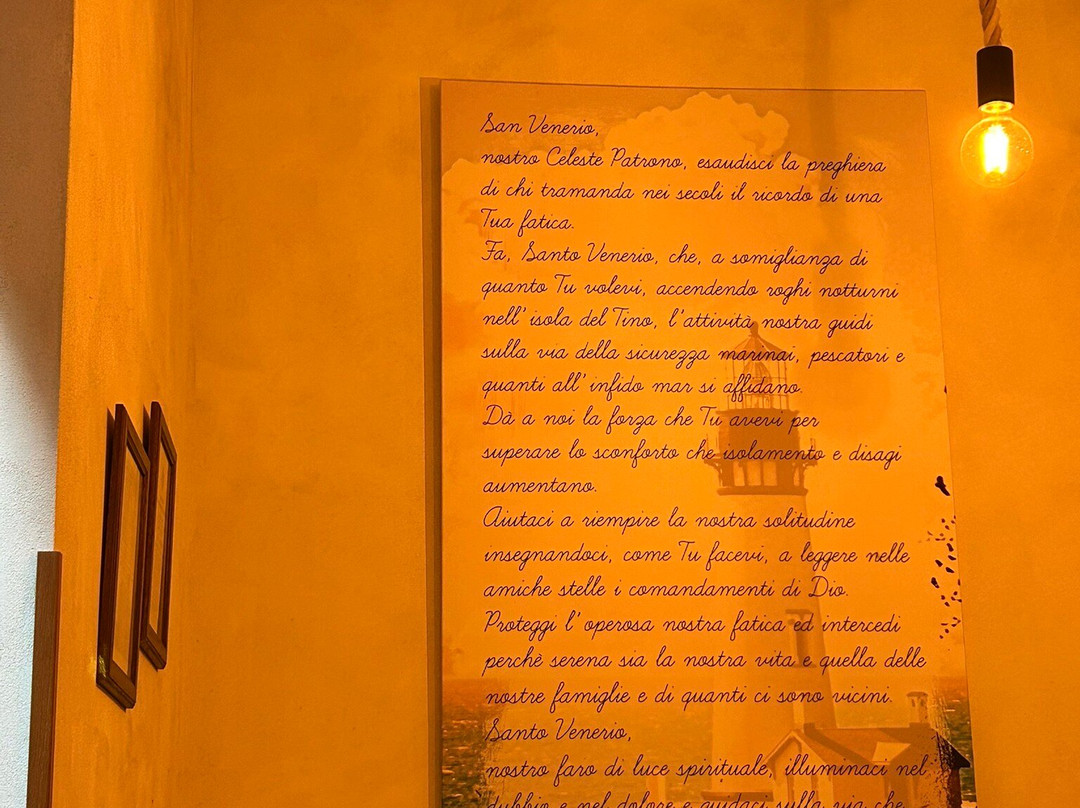 San Venerio,
nostro Celeste Patrono, esaudisci la preghiera
di chi tramanda nei secoli il ricordo di una
Tua fatica.
Fa, Santo Venerio, che, a somiglianza di
quanto Tu volevi, accendendo roghi notturni
nell'isola del Tino, l'attività nostra guidi
sulla via della sicurezza marinai, pescatori e
quanti all'infido mar si affidano.
Dà a noi la forza che Tu avevi per
superare lo sconforto che isolamento e disagi
aumentano.
Aiutaci a riempire la nostra solitudine
insegnandoci, come Tu facevi, a leggere nelle
amiche stelle i comandamenti di Dio.
Proteggi l'operosa nostra fatica ed intercedi
perchè serena sia la nostra vita e quella delle
nostre famiglie e di quanti ci sono vicini.
Santo Venerio,
nostro faro di luce spirituale, illuminaci nel
dubbio e nel dolore e guidaci sulla via che